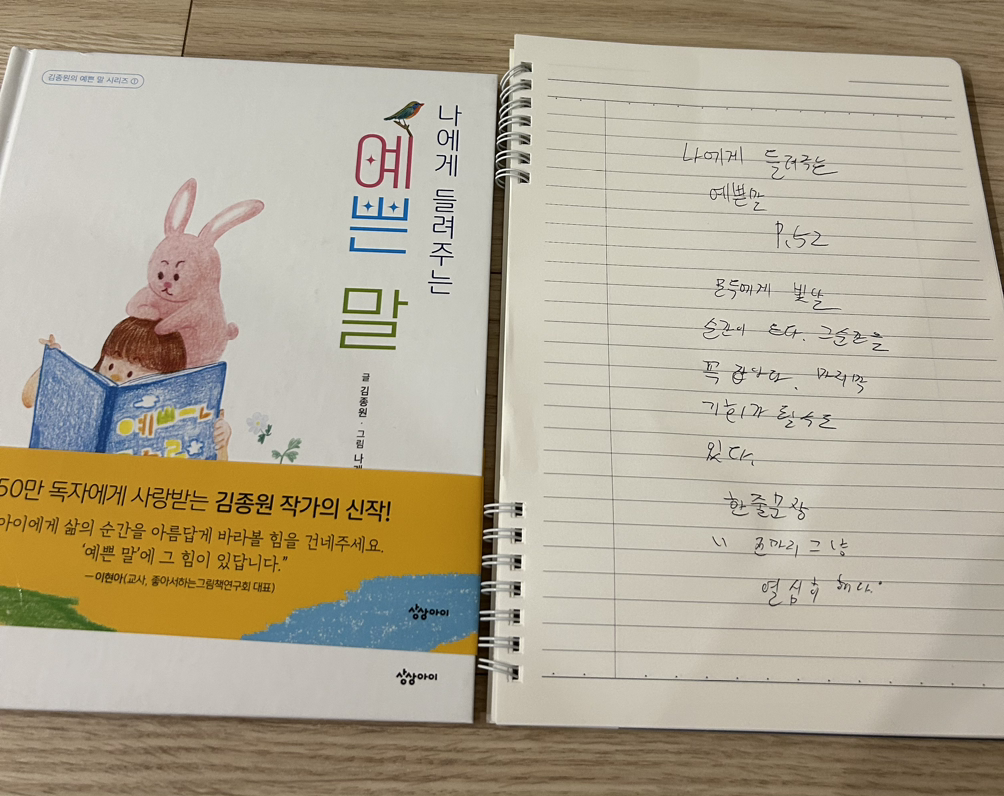 김종원의 예쁜 말 시리즈 ①
나에게 들려주는
예쁜
말
글 김종원 · 그림 나래
예쁜
50만 독자에게 사랑받는 김종원 작가의 신작!
아이에게 삶의 순간을 아름답게 바라볼 힘을 건네주세요.
‘예쁜 말’에 그 힘이 있답니다.”
—이현아(교사, 좋아서하는그림책연구회 대표)
상상아이
상상아이
나에게 들려주는
예쁜말
P.52
모두에게 빛날
순간이 온다. 그순간을
꼭 잡아라. 마지막
기회가 될수도
있다.
한 줄문장
" 존마리 그냥
열심히 해라.